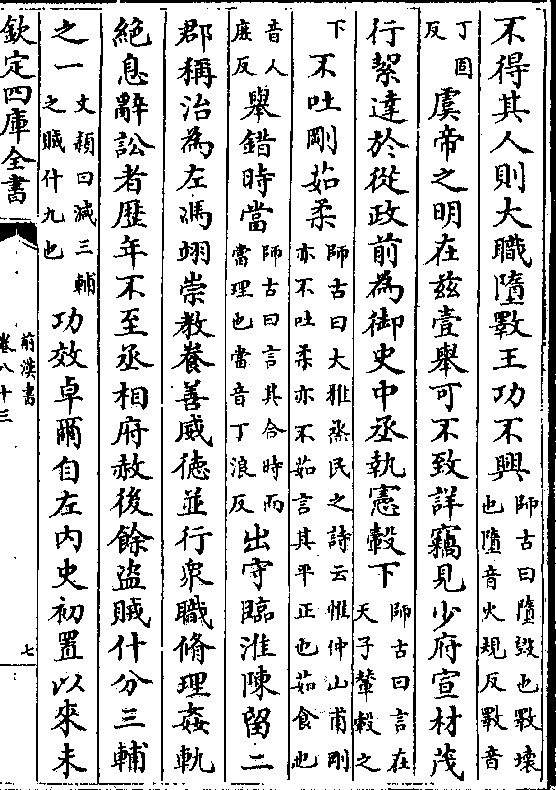 不得其人則大職墮斁王功不興師古曰墮毀也斁壞也墮音火規反斁音
丁固反虞帝之明在茲壹舉可不致詳竊見少府宣材茂
行絜達於從政前為御史中丞執憲轂下師古曰言在天子輦轂之
下不吐剛茹柔師古曰大雅烝民之詩云惟仲山甫剛亦不吐柔亦不茹言其平正也茹食也
音人庶反舉錯時當師古曰言其合時而當理也當音丁浪反出守臨淮陳留二
郡稱治為左馮翊崇教養善威德並行衆職脩理姦軌
絶息辭訟者歴年不至丞相府赦後餘盜賊什分三輔
之一文穎曰減三輔之賊什九也功效卓爾自左内史初置以來未
欽定四庫全書
前漢書
卷八十三
七